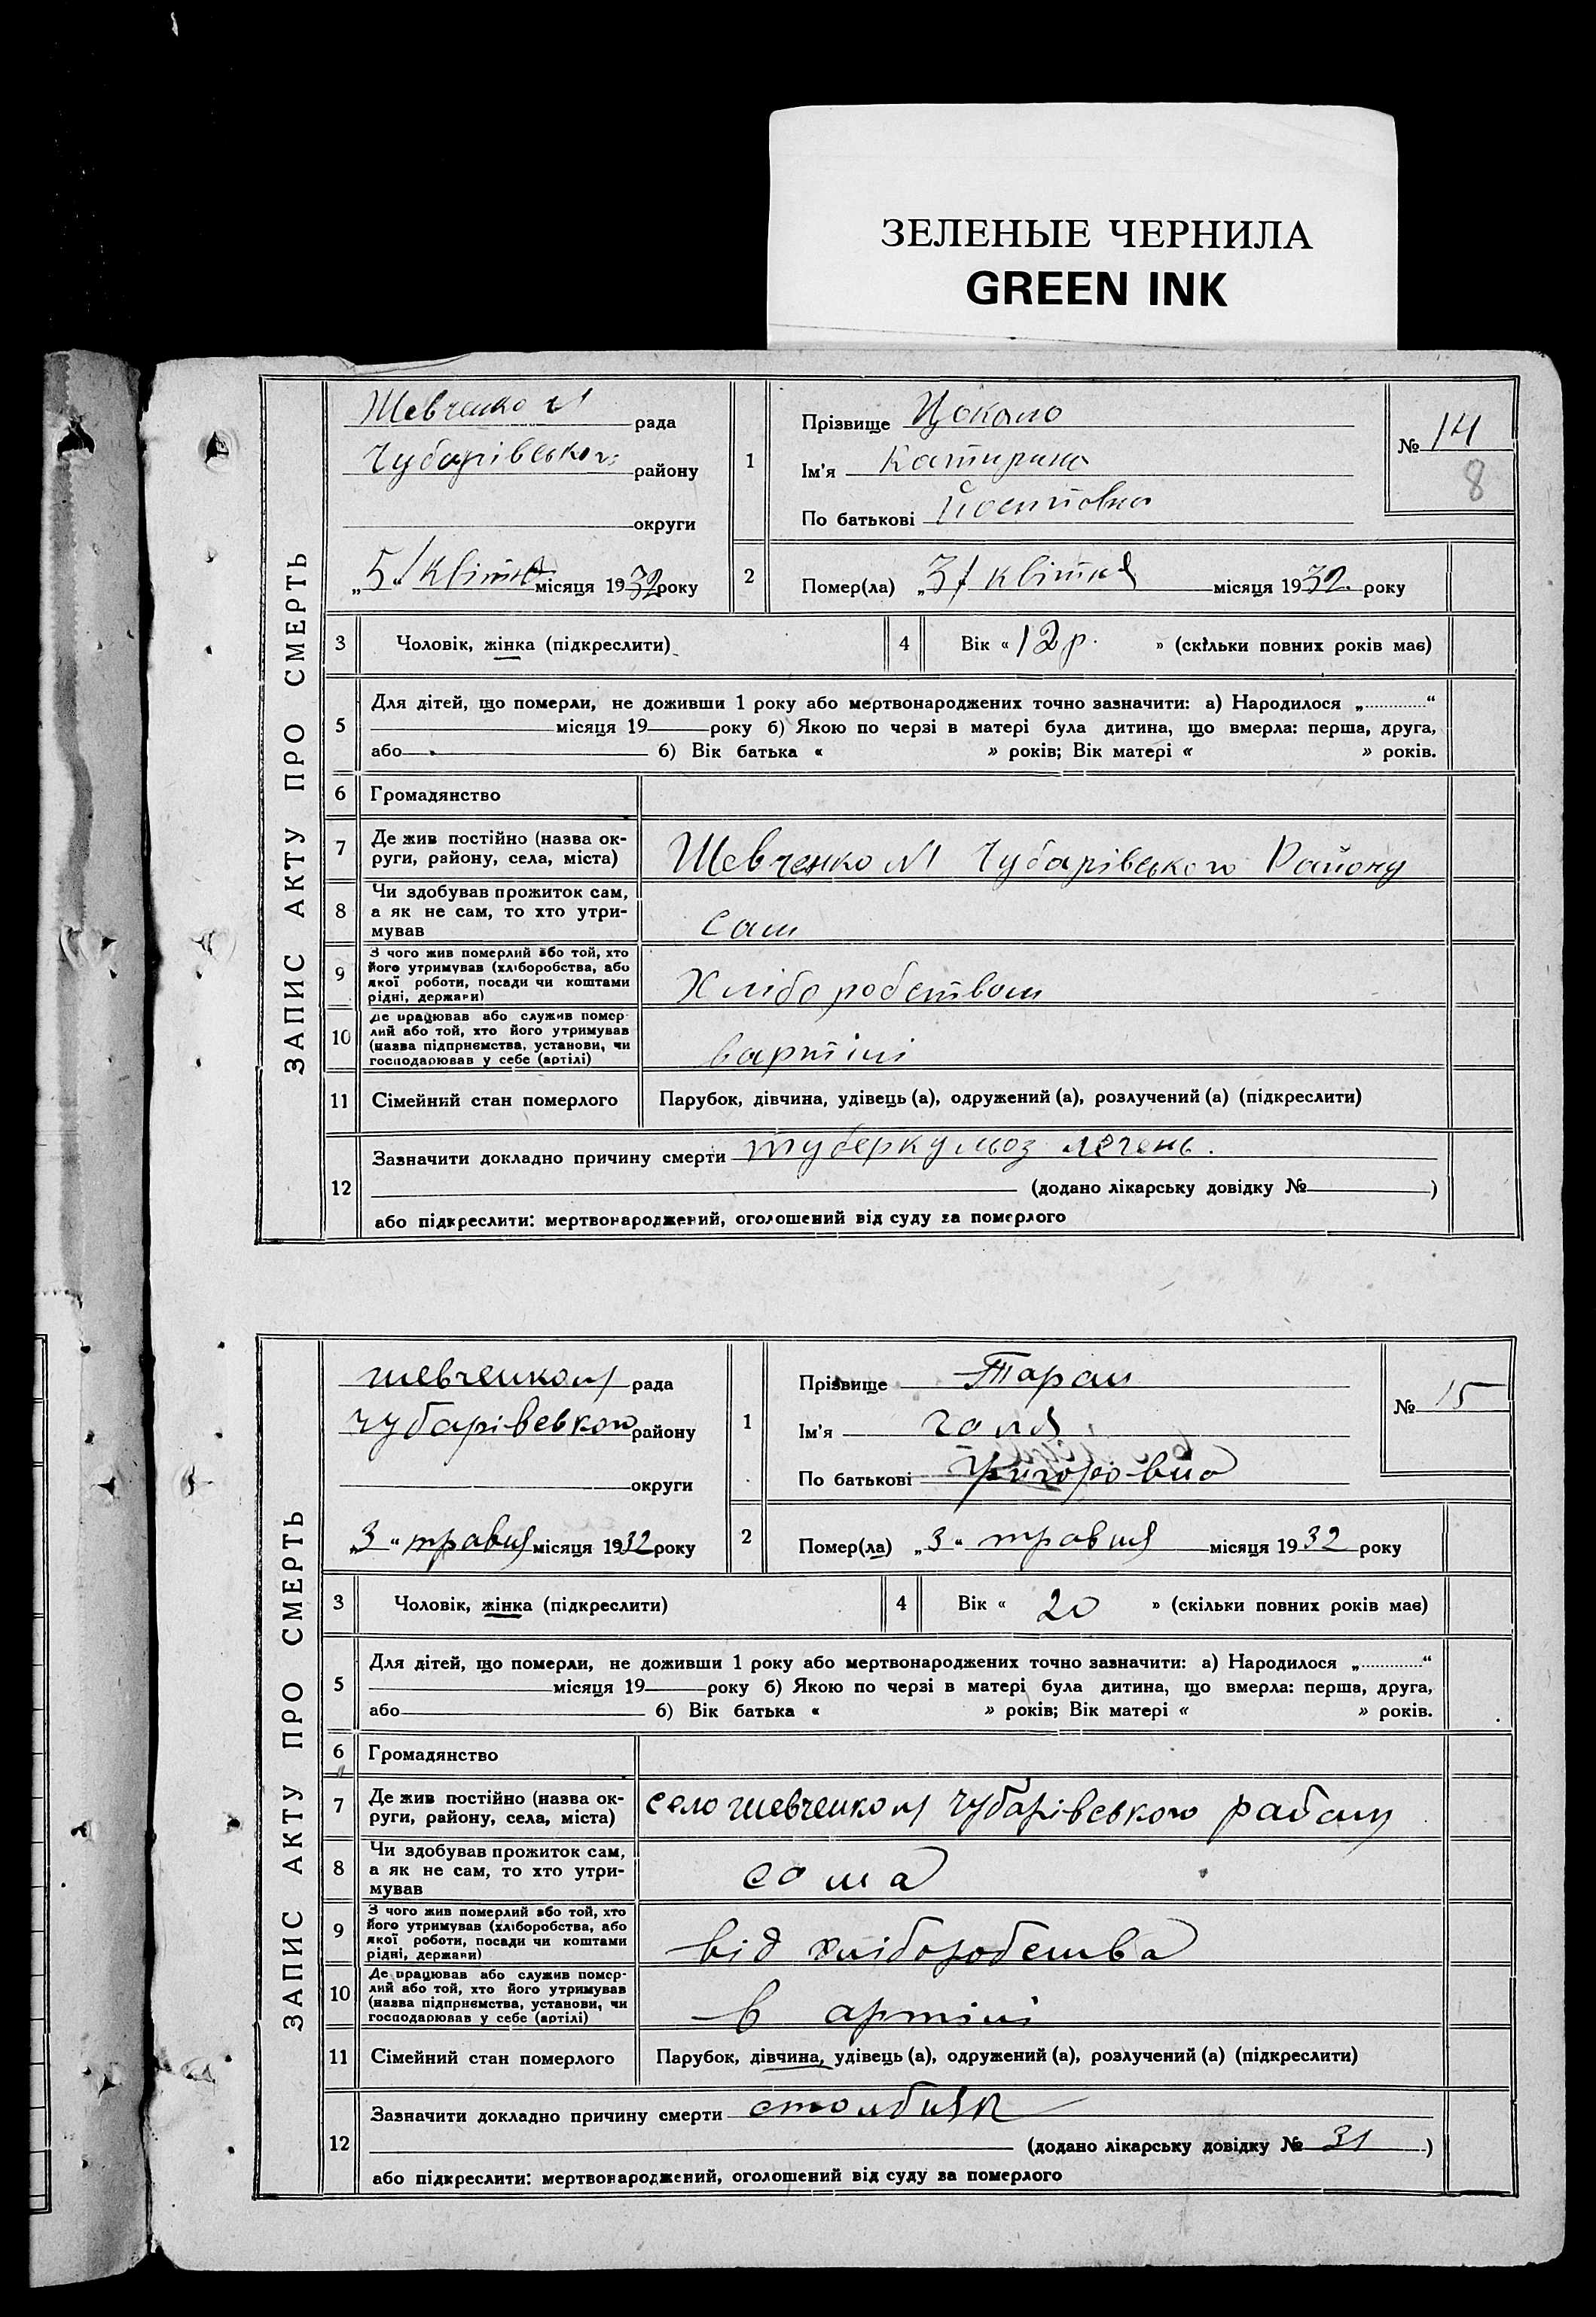 ЗЕЛЕНЫЕ ЧЕРНИЛА
GREEN INK
ЗАПИС АКТУ ПРО СМЕРТЬ
Шевченко №1 рада
Чубарівського району
округи
„5“ квітня місяця 1932 року
1 Прізвище Цокало
Ім'я Катирина
По батькові
№ 14
8
2 Помер(ла) „3“ квітня місяця 1932 року
3 Чоловік, жінка (підкреслити)
4 Вік « 12 р. » (скільки повних років має)
5 Для дітей, що померли, не доживши 1 року або мертвонароджених точно зазначити: а) Народилося „............“
місяця 19 року б) Якою по черзі в матері була дитина, що вмерла: перша, друга,
або б) Вік батька « » років; Вік матері « » років.
6 Громадянство
7 Де жив постійно (назва ок-
руги, району, села, міста) Шевченко №1 Чубарівського Району
8 Чи здобував прожиток сам,
а як не сам, то хто утри-
мував сам
9 З чого жив померлий або той, хто
його утримував (хліборобства, або
якої роботи, посади чи коштами
рідні, держави) Хліборобством
10 Де працював або служив помер-
лий або той, хто його утримував
(назва підприємства, установи, чи
господарював у себе (артілі) вартілі
11 Сімейний стан померлого Парубок, дівчина, удівець (а), одружений (а), розлучений (а) (підкреслити)
12 Зазначити докладно причину смерти туберкульоз легень.
(додано лікарську довідку № )
або підкреслити: мертвонароджений, оголошений від суду за померлого
ЗАПИС АКТУ ПРО СМЕРТЬ
шевченко №1 рада
чубарівевкого району
округи
„3“ травня місяця 1932 року
1 Прізвище Таран
Ім'я галя
По батькові Григоровна
№ 15
2 Помер(ла) „3“ травня місяця 1932 року
3 Чоловік, жінка (підкреслити)
4 Вік « 20 » (скільки повних років має)
5 Для дітей, що померли, не доживши 1 року або мертвонароджених точно зазначити: а) Народилося „............“
місяця 19 року б) Якою по черзі в матері була дитина, що вмерла: перша, друга,
або б) Вік батька « » років; Вік матері « » років.
6 Громадянство
7 Де жив постійно (назва ок-
руги, району, села, міста) село шевченко №1 чубарівського району
8 Чи здобував прожиток сам,
а як не сам, то хто утри-
мував сама
9 З чого жив померлий або той, хто
його утримував (хліборобства, або
якої роботи, посади чи коштами
рідні, держави) від хліборобства
10 Де працював або служив помер-
лий або той, хто його утримував
(назва підприємства, установи, чи
господарював у себе (артілі) в артілі
11 Сімейний стан померлого Парубок, дівчина, удівець (а), одружений (а), розлучений (а) (підкреслити)
12 Зазначити докладно причину смерти столбняк
(додано лікарську довідку № 31 )
або підкреслити: мертвонароджений, оголошений від суду за померлого